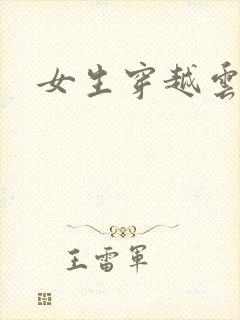 女生穿越雲
王雷軍